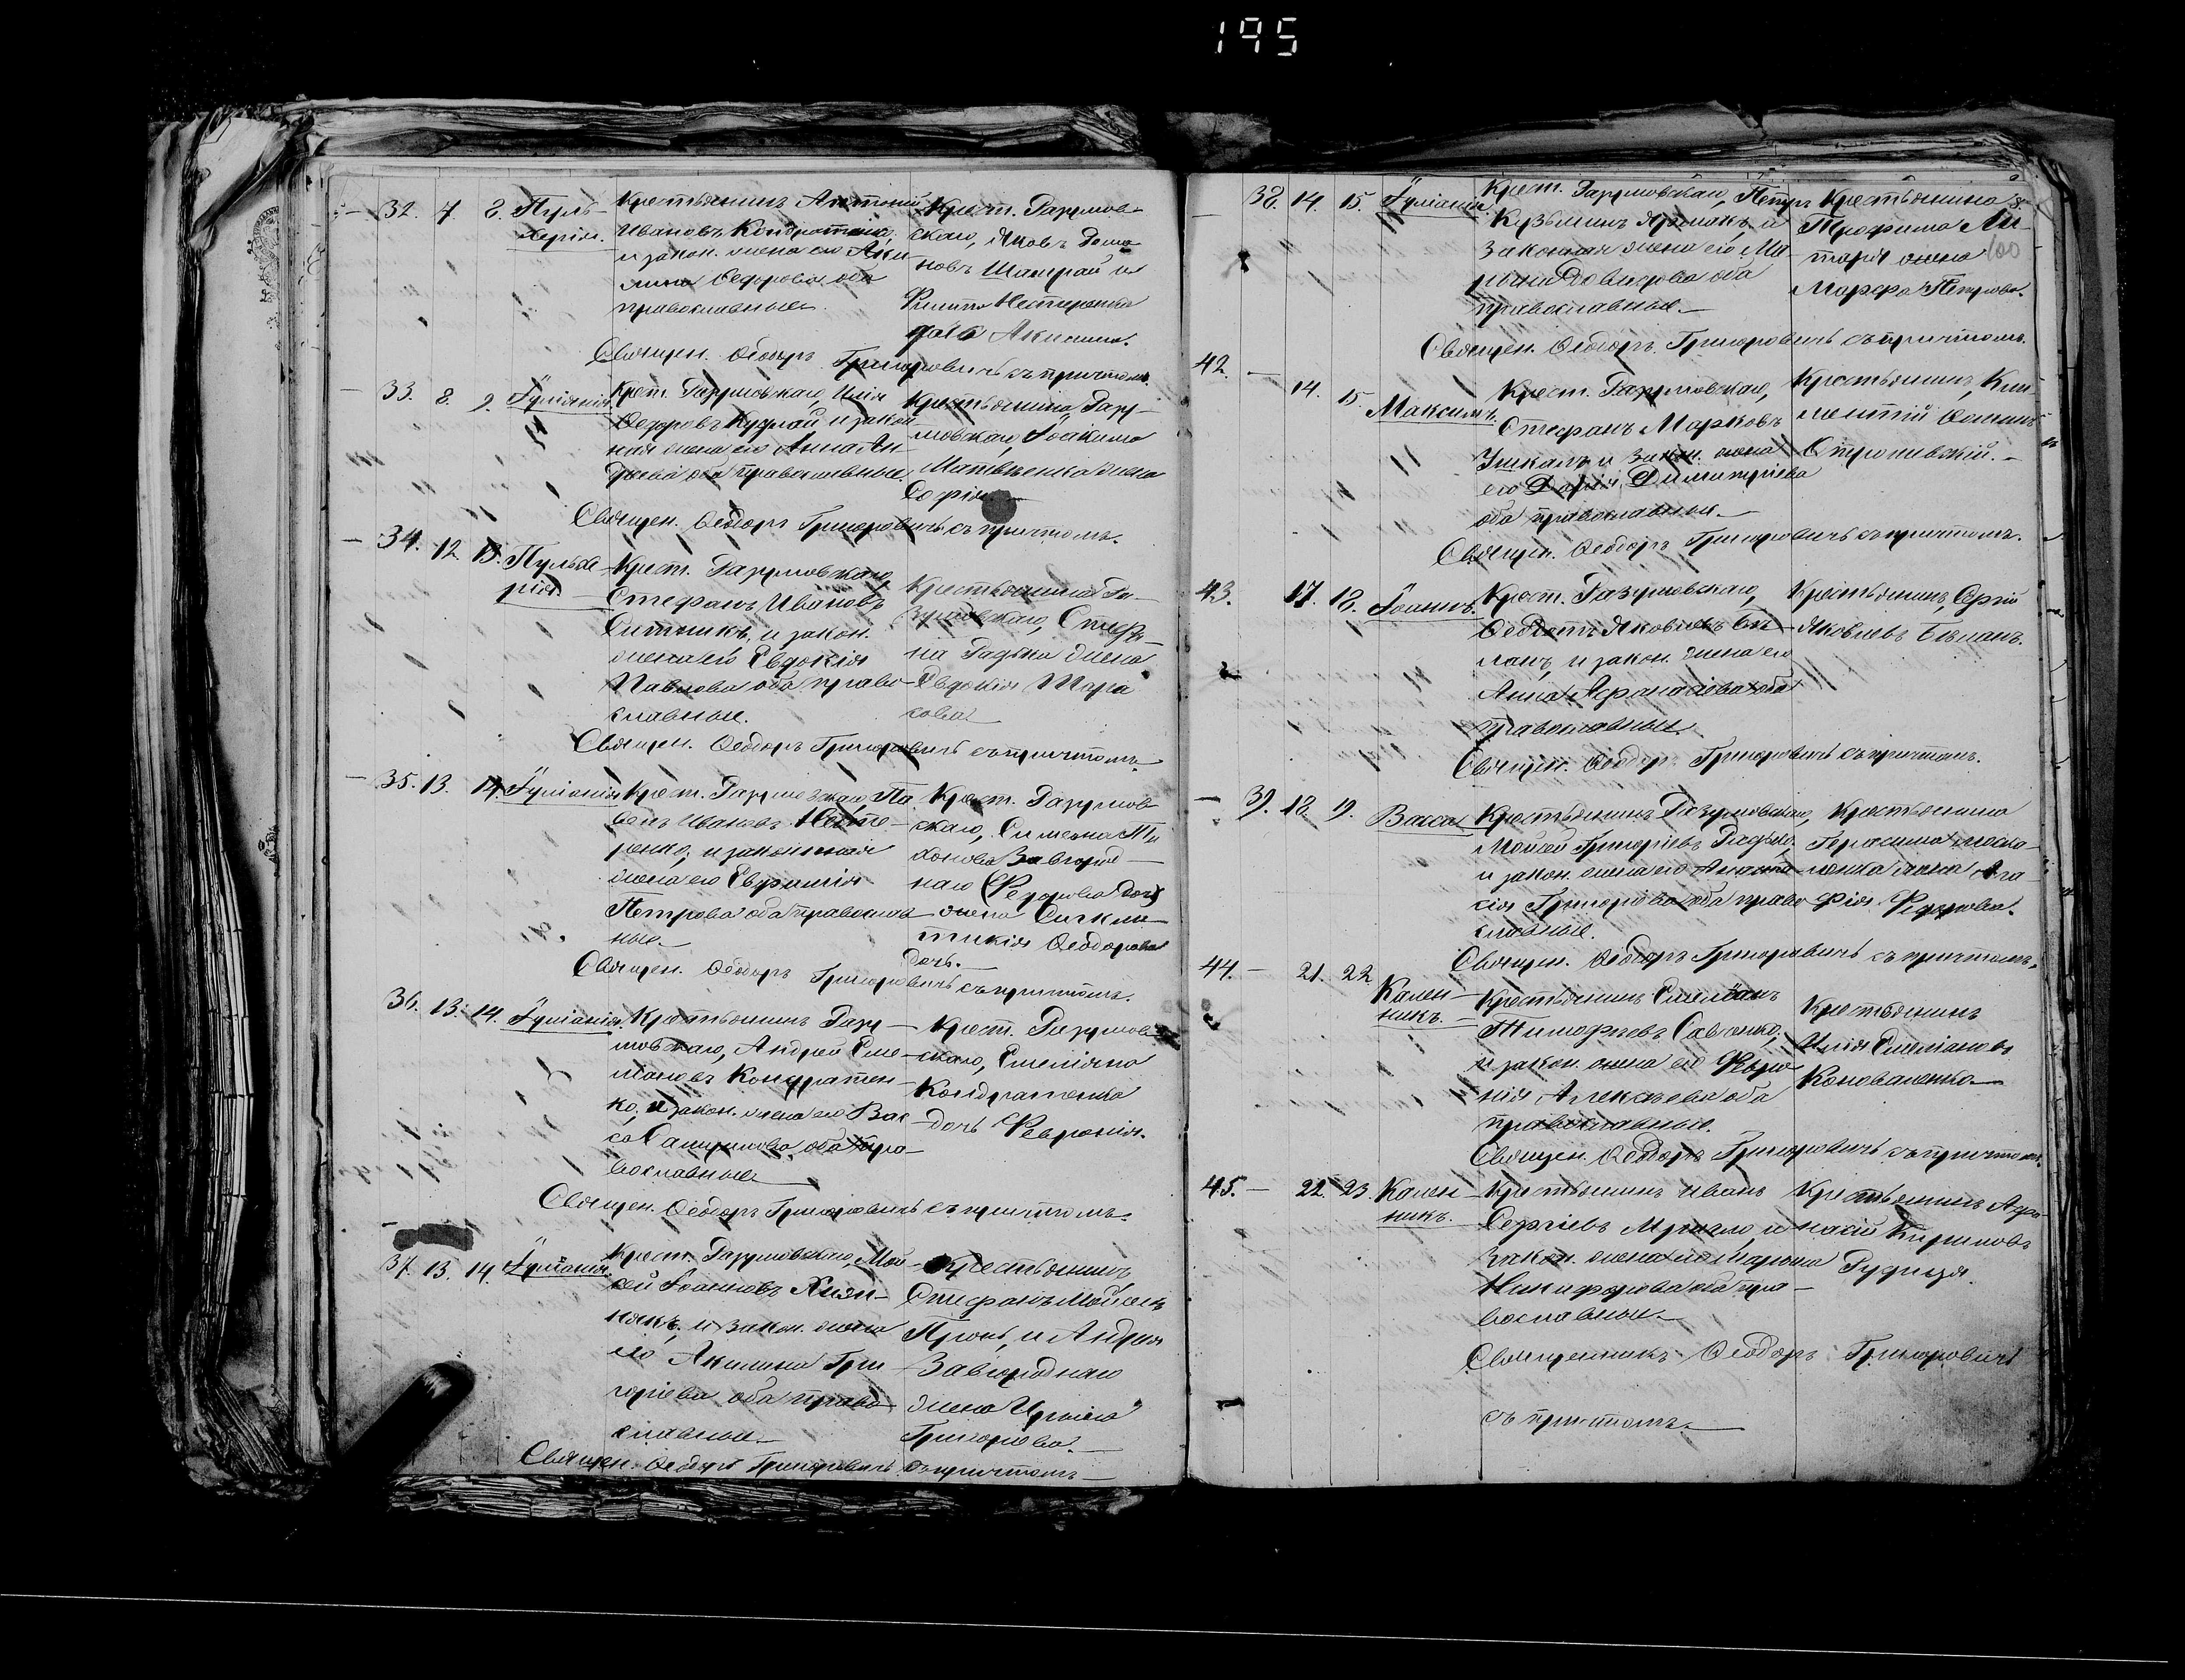 195
32. 7. 8. Пуль-
херія.
Крестьянинъ Антоній
Ивановъ Кондратенко,
и закон. жена его Аки-
лина Ѳедорова оба
православные.
Крест. Разумов-
скаго, Яковъ
Шамрай и
Филиппа Нестеренка
дочь Акилина.
Священ. Ѳеодоръ Григоровичъ съ причтомъ.
33. 8. 9. Іуліанія.
Крест. Разумовскаго, Илія
Ѳедоровъ и закон-
ная жена его Анна Ан-
оба православные.
Крестьянина Разу-
мовскаго, Іоакима
Матвѣенка жена
Софія.
Священ. Ѳеодоръ Григоровичъ съ причтомъ.
34. 12. 13. Пульхе-
рія.
Крест. Разумовскаго,
Стефанъ Ивановъ
Ситникъ, и закон.
жена его Евдокія
Павлова оба право-
славные.
Крестьянина Ра-
зумовскаго, Стефа-
на Радька жена
Евдокія Марк
кова
Священ. Ѳеодоръ Григоровичъ съ причтомъ.
35. 13. 14. Іуліанія
Крест. Разумовскаго, Па-
велъ Ивановъ Несте-
ренко, и законная
жена его Евфимія
Петрова оба православ-
ные.
Крест. Разумов-
скаго, Симеона Ти-
хонова Завгород-
наго (Ѳедорова дочь)
жена Синкли-
тикія Ѳеодорова
дочь.
Священ. Ѳеодоръ Григоровичъ съ причтомъ.
36. 13. 14. Іуліанія.
Крестьянинъ Разу-
мовскаго, Андрей Еме-
ліановъ Кондратен-
ко, и закон. жена его Вас-
са Самуилова оба пра-
вославные.
Крест. Разумов-
скаго, Емеліяна
Кондратенка
дочь Февронія.
Священ. Ѳеодоръ Григоровичъ съ причтомъ.
37. 13. 14. Іуліанія.
Крест. Разумовскаго, Мой-
сей Іоанновъ
и закон. жена
его Акилина Гри-
горіева оба право-
славные.
Крестьянинъ
Стефанъ Мойсеевъ
и Андрея
Завгороднаго
жена Ирина
Григоріева.
Священ. Ѳеодоръ Григоровичъ съ причтомъ
38. 14. 15. Іуліанія.
Крест. Разумовскаго, Петръ
Кузьминъ Ярмакъ, и
законная жена его Ма-
оба
православные.
Крестьянина
Трофима Ан-
жена
Марфа Петрова.
100
Священ. Ѳеодоръ Григоровичъ съ причтомъ.
42. 14. 15. Максимъ.
Крест. Разумовскаго,
Стефанъ Марковъ
и закон. жена
его Дарія Димитріева
оба православные.
Крестьянинъ, Кли-
ментій
Священ. Ѳеодоръ Григоровичъ съ причтомъ.
43. 17. 18. Іоаннъ.
Крест. Разумовскаго,
Ѳеодотъ Яковлевъ Бѣ-
ланъ, и закон. жена его
Анна Афанасіева оба
православные.
Крестьянинъ, Сергій
Яковлевъ Бѣланъ.
Священ. Ѳеодоръ Григоровичъ съ причтомъ.
39. 18. 19. Васса
Крестьянинъ Разумовскаго,
Мойсей Григоріевъ Радько,
и закон. жена его Анаста-
сія Григоріева оба право-
славные.
Крестьянина
Герасима
жена Ага-
фія Ѳедорова.
Священ. Ѳеодоръ Григоровичъ съ причтомъ.
44. 21. 22. Кален-
никъ.
Крестьянинъ Емеліанъ
Тимофѣевъ Савченко,
и закон. жена его Февро-
нія Алексѣева оба
православные.
Крестьянинъ
Илія Емеліановъ
Коноваленко
Священ. Ѳеодоръ Григоровичъ съ причтомъ.
45. 22. 23. Кален-
никъ.
Крестьянинъ Иванъ
Сергіевъ и
закон. жена его Марина
Никифорова оба пра-
вославные.
Крестьянинъ Афа-
насій Кириловъ
Рудица.
Священникъ Ѳеодоръ Григоровичъ
съ причтомъ.